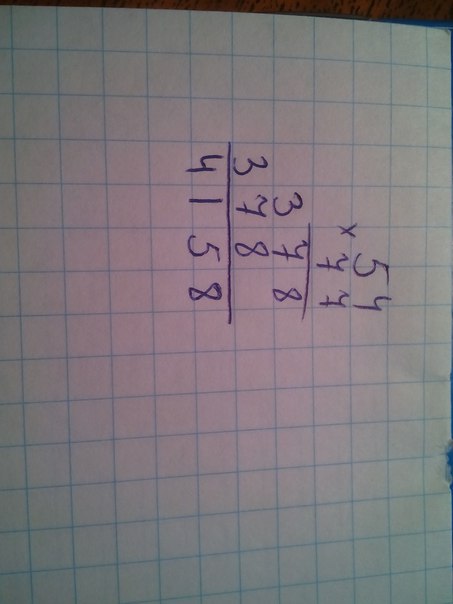 54
× 77
378
378
4158